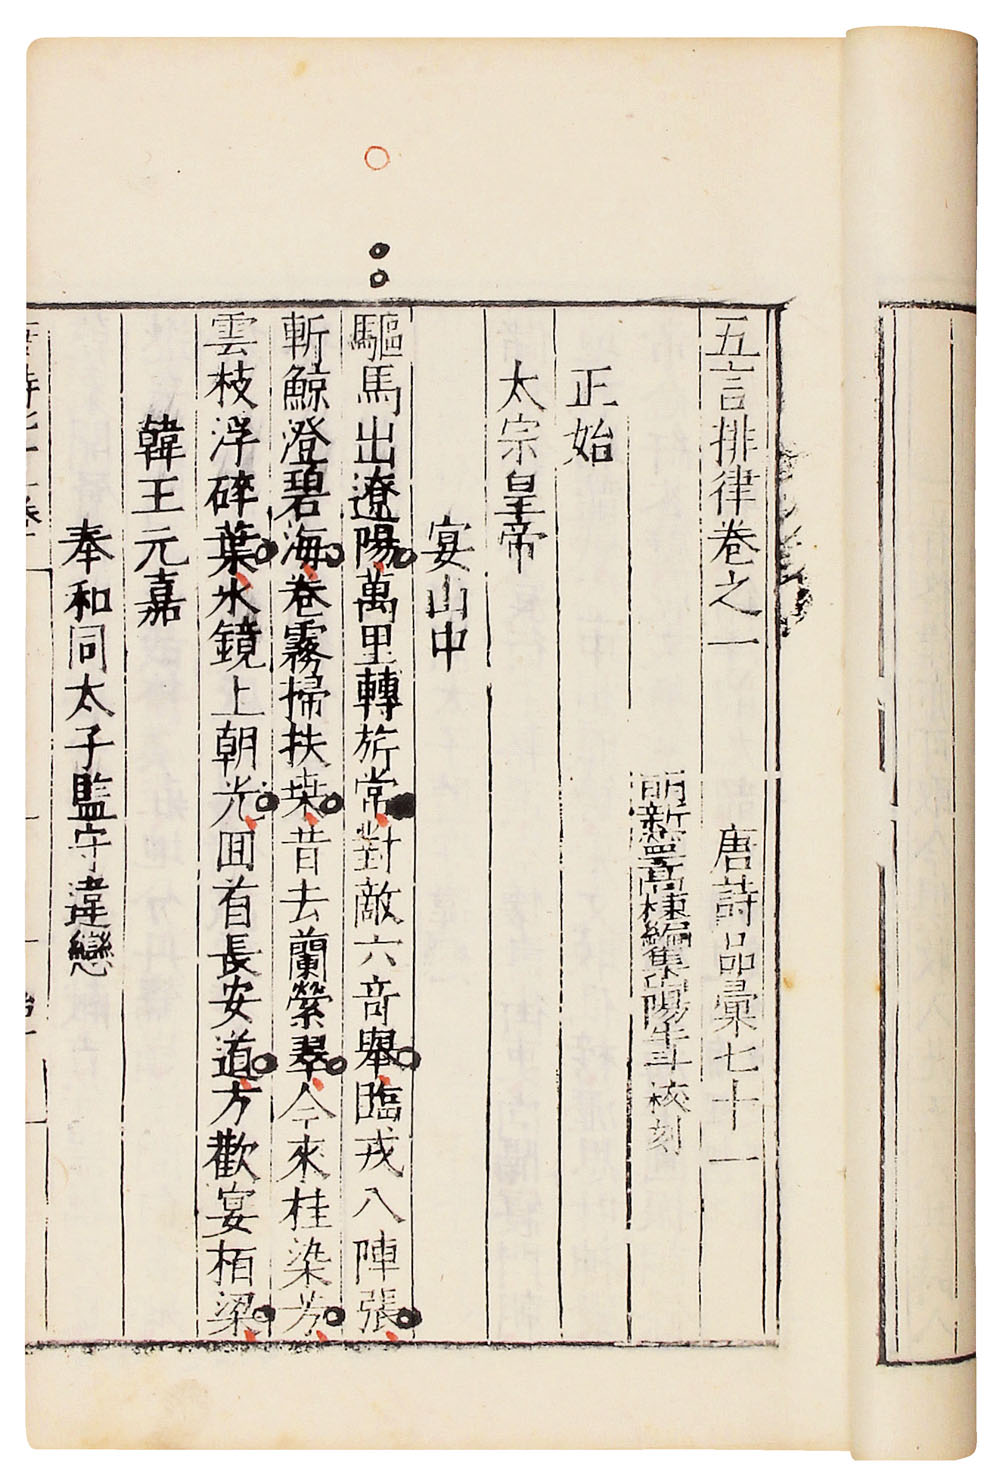 五言排律卷之一 唐詩品彙七十一
新寧高棅編集 陽 斗校刻
正始
太宗皇帝
宴山中
驅馬出遼陽萬里轉旂常對敵六奇舉臨戎八陣張
斬鯨澄碧海卷霧掃扶桒昔去蘭縈翠今來桂染芳
雲枝浮碎葉氷鏡上朝光囬首長安道方歡宴栢梁
韓王元嘉
奉和同太子監守違戀